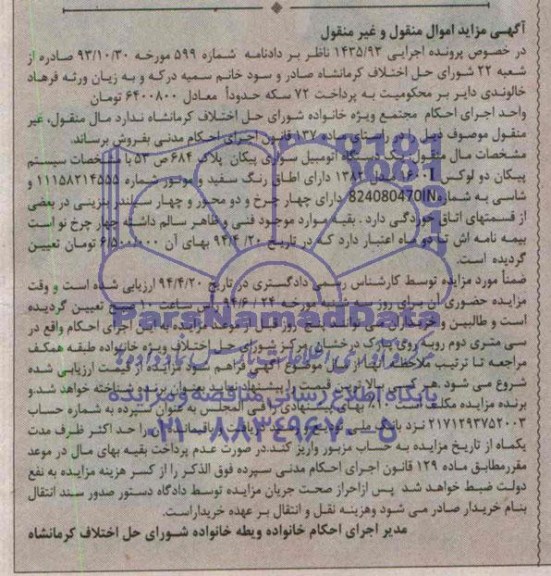 آگهی مزاید اموال منقول و غیر منقول
در خصوص پرونده اجرایی ۱۴۳۵/۹۳ ناظر بر دادنامه شماره ۵۹۹ مورخه ۹۳/۱۰/۳۰ صادره از
شعبه ۲۲ شورای حل اختلاف کرمانشاه صادر و سود خانم سمیه درکه و به زیان ورثه فرهاد
خالوندی دایر بر محکومیت به پرداخت ۷۲ سکه حدوداً معادل ۶۴۰۰۸۰۰ تومان
واحد اجرای احکام مجتمع ویژه خانواده شورای حل اختلاف کرمانشاه ندارد مال منقول، غیر
منقول موصوف ذیل را در راستای ماده ۱۳۷ قانون اجرای احکام مدنی بفروش برساند.
مشخصات مال منقول: یک دستگاه اتومبیل سواری پیکان پلاک ۶۸۴ ص ۵۳ با مشخصات سیستم
پیکان دو لوکس ۱۶۰۰ مدل ۱۳۸۲ دارای اطاق رنگ سفید و موتور شماره ۱۱۱۵۸۲۱۴۵۵۵ و
شاسی به شماره 824080470IN دارای چهار چرخ و دو محور و چهار سیلندر بنزینی در بعضی
از قسمتهای اتاق خوردگی دارد . بقیه موارد موجود فنی و ظاهر سالم داشته چهار چرخ نو است
بیمه نامه اش تا دو ماه اعتبار دارد که در تاریخ ۹۴/۴/۲۰ بهای آن ۶/۵۰۰/۰۰۰ تومان تعیین
گردیده است.
ضمناً مورد مزایده توسط کارشناس رسمی دادگستری در تاریخ ۹۴/۴/۲۰ ارزیابی شده است و وقت
مزایده حضوری آن برای روز سه شنبه مورخه ۹۴/۶/۲۴ راس ساعت ۱۰ صبح تعیین گردیده
است و طالبین و خریداران می توانند پنج روز قبل از موعد مزایده به این اجرای احکام واقع در
سی متری دوم روبه روی پارک درخشان مرکز شورای حل اختلاف ویژه خانواده طبقه همکف
مراجعه تا ترتیب ملاحظه آنها از مال موضوع آگهی فراهم شود مزایده از قیمت ارزیابی شده
شروع می شود .هر کسی بالاترین قیمت را پیشنهاد نماید بعنوان برنده شناخته خواهد شد.و
برنده مزایده مکلف است ۱۰٪ بهای پیشنهادی را فی المجلس به عنوان سپرده به شماره حساب
۲۱۷۱۲۹۳۷۵۲۰۰۳ نزد بانک ملی تودیع و رسید دریافت و باقیمانده آن را حد اکثر ظرف مدت
یکماه از تاریخ مزایده به حساب مزبور واریز کند.در صورت عدم پرداخت بقیه بهای مال در موعد
مقررمطابق ماده ۱۲۹ قانون اجرای احکام مدنی سپرده فوق الذکر را از کسر هزینه مزایده به نفع
دولت ضبط خواهد شد پس ازاحراز صحت جریان مزایده توسط دادگاه دستور صدور سند انتقال
بنام خریدار صادر می شود وهزینه نقل و انتقال بر عهده خریداراست.
مدیر اجرای احکام خانواده ویطه خانواده شورای حل اختلاف کرمانشاه
ParsNamadData
پایگاه اطلاع رسانی مناقصه و مزایده
۰۲۱-۸۸۳۴۹۶۷۰-۵